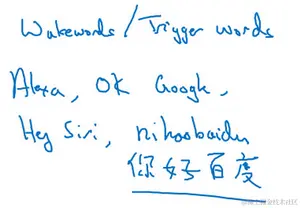 Wakewords / Trigger words
Alexa, OK Google,
Hey Siri, nihaobaidu
你好百度